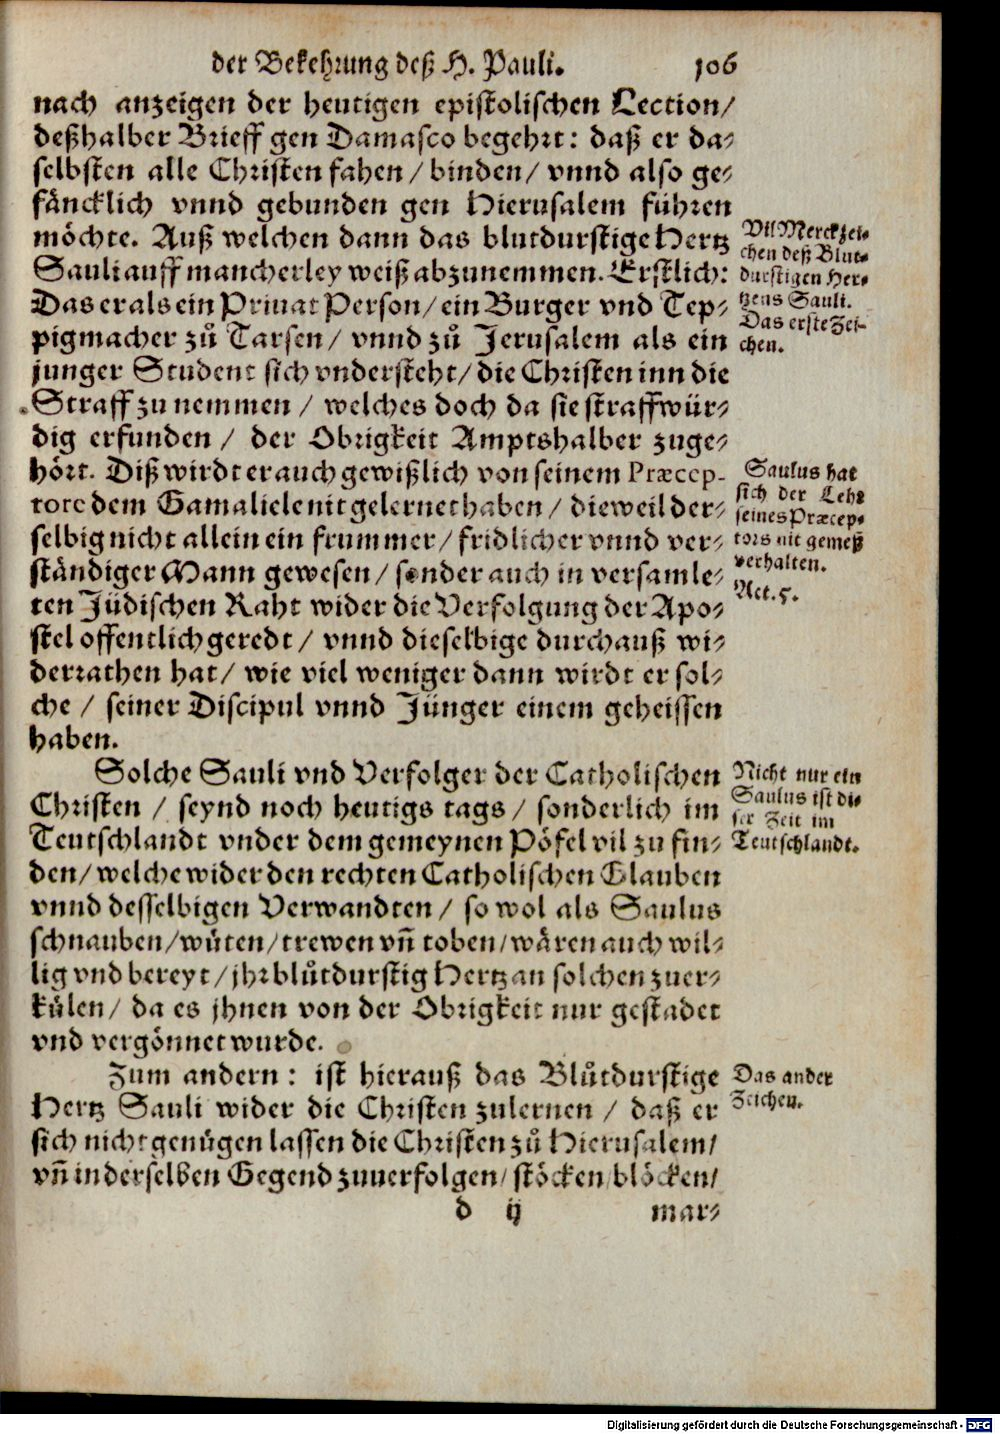 der Bekehrung deß H. Pauli. 106
nach anzeigen der heutigen epistolischen Lection/
deßhalber Brieff gen Damasco begehrt: daß er da-
selbsten alle Christen fahen / binden / vnnd also ge-
fäncklich vnnd gebunden gen Hierusalem führen
möchte. Auß welchen dann das blutdurstige Hertz
Sauli auff mancherley weiß abzunemmen. Erstlich:
Das er als ein Priuat Person / ein Burger vnd Tep-
pigmacher zů Tarsen / vnnd zů Jerusalem als ein
junger Student sich vndersteht / die Christen inn die
Straff zu nemmen / welches doch da sie straffwür-
dig erfunden / der Obrigkeit Amptshalber zuge-
hört. Diß wirdt er auch gewißlich von seinem Præcep-
tore dem Gamaliele nit gelernet haben / dieweil der-
selbig nicht allein ein frummer / fridlicher vnnd ver-
ständiger Mann gewesen / sonder auch in versamle-
ten Jüdischen Raht wider die Verfolgung der Apo-
stel offentlich geredt / vnnd dieselbige durchauß wi-
derrathen hat / wie viel weniger dann wirdt er sol-
che / seiner Discipul vnnd Jünger einem geheissen
haben.
Vil Merckzei-
chen deß Blut-
durstigen Her-
tzens Sauli.
Das erste Zei-
chen.
Saulus hat
sich der Lehr
seines Præcep-
tors nit gemeß
verhalten.
Act. 5.
Solche Sauli vnd Verfolger der Catholischen
Christen / seynd noch heutigs tags / sonderlich im
Teutschlandt vnder dem gemeynen Pöfel vil zu fin-
den / welche wider den rechten Catholischen Glauben
vnnd desselbigen Verwandten / so wol als Saulus
schnauben / wüten / trewen vñ toben / wären auch wil-
lig vnd bereyt / jhr blůtdurstig Hertz an solchen zuer-
külen / da es jhnen von der Obrigkeit nur gestadet
vnd vergönnet wurde.
Nicht nur ein
Saulus ist di-
ser Zeit im
Teutschlandt.
Zum andern : ist hierauß das Blůtdurstige
Hertz Sauli wider die Christen zulernen / daß er
sich nicht genügen lassen die Christen zů Hierusalem /
vñ in derselben Gegend zuuerfolgen / stöcken / blöcken /
Das ander
Zeichen.
d ij mar-
Digitalisierung gefördert durch die Deutsche Forschungsgemeinschaft - DFG